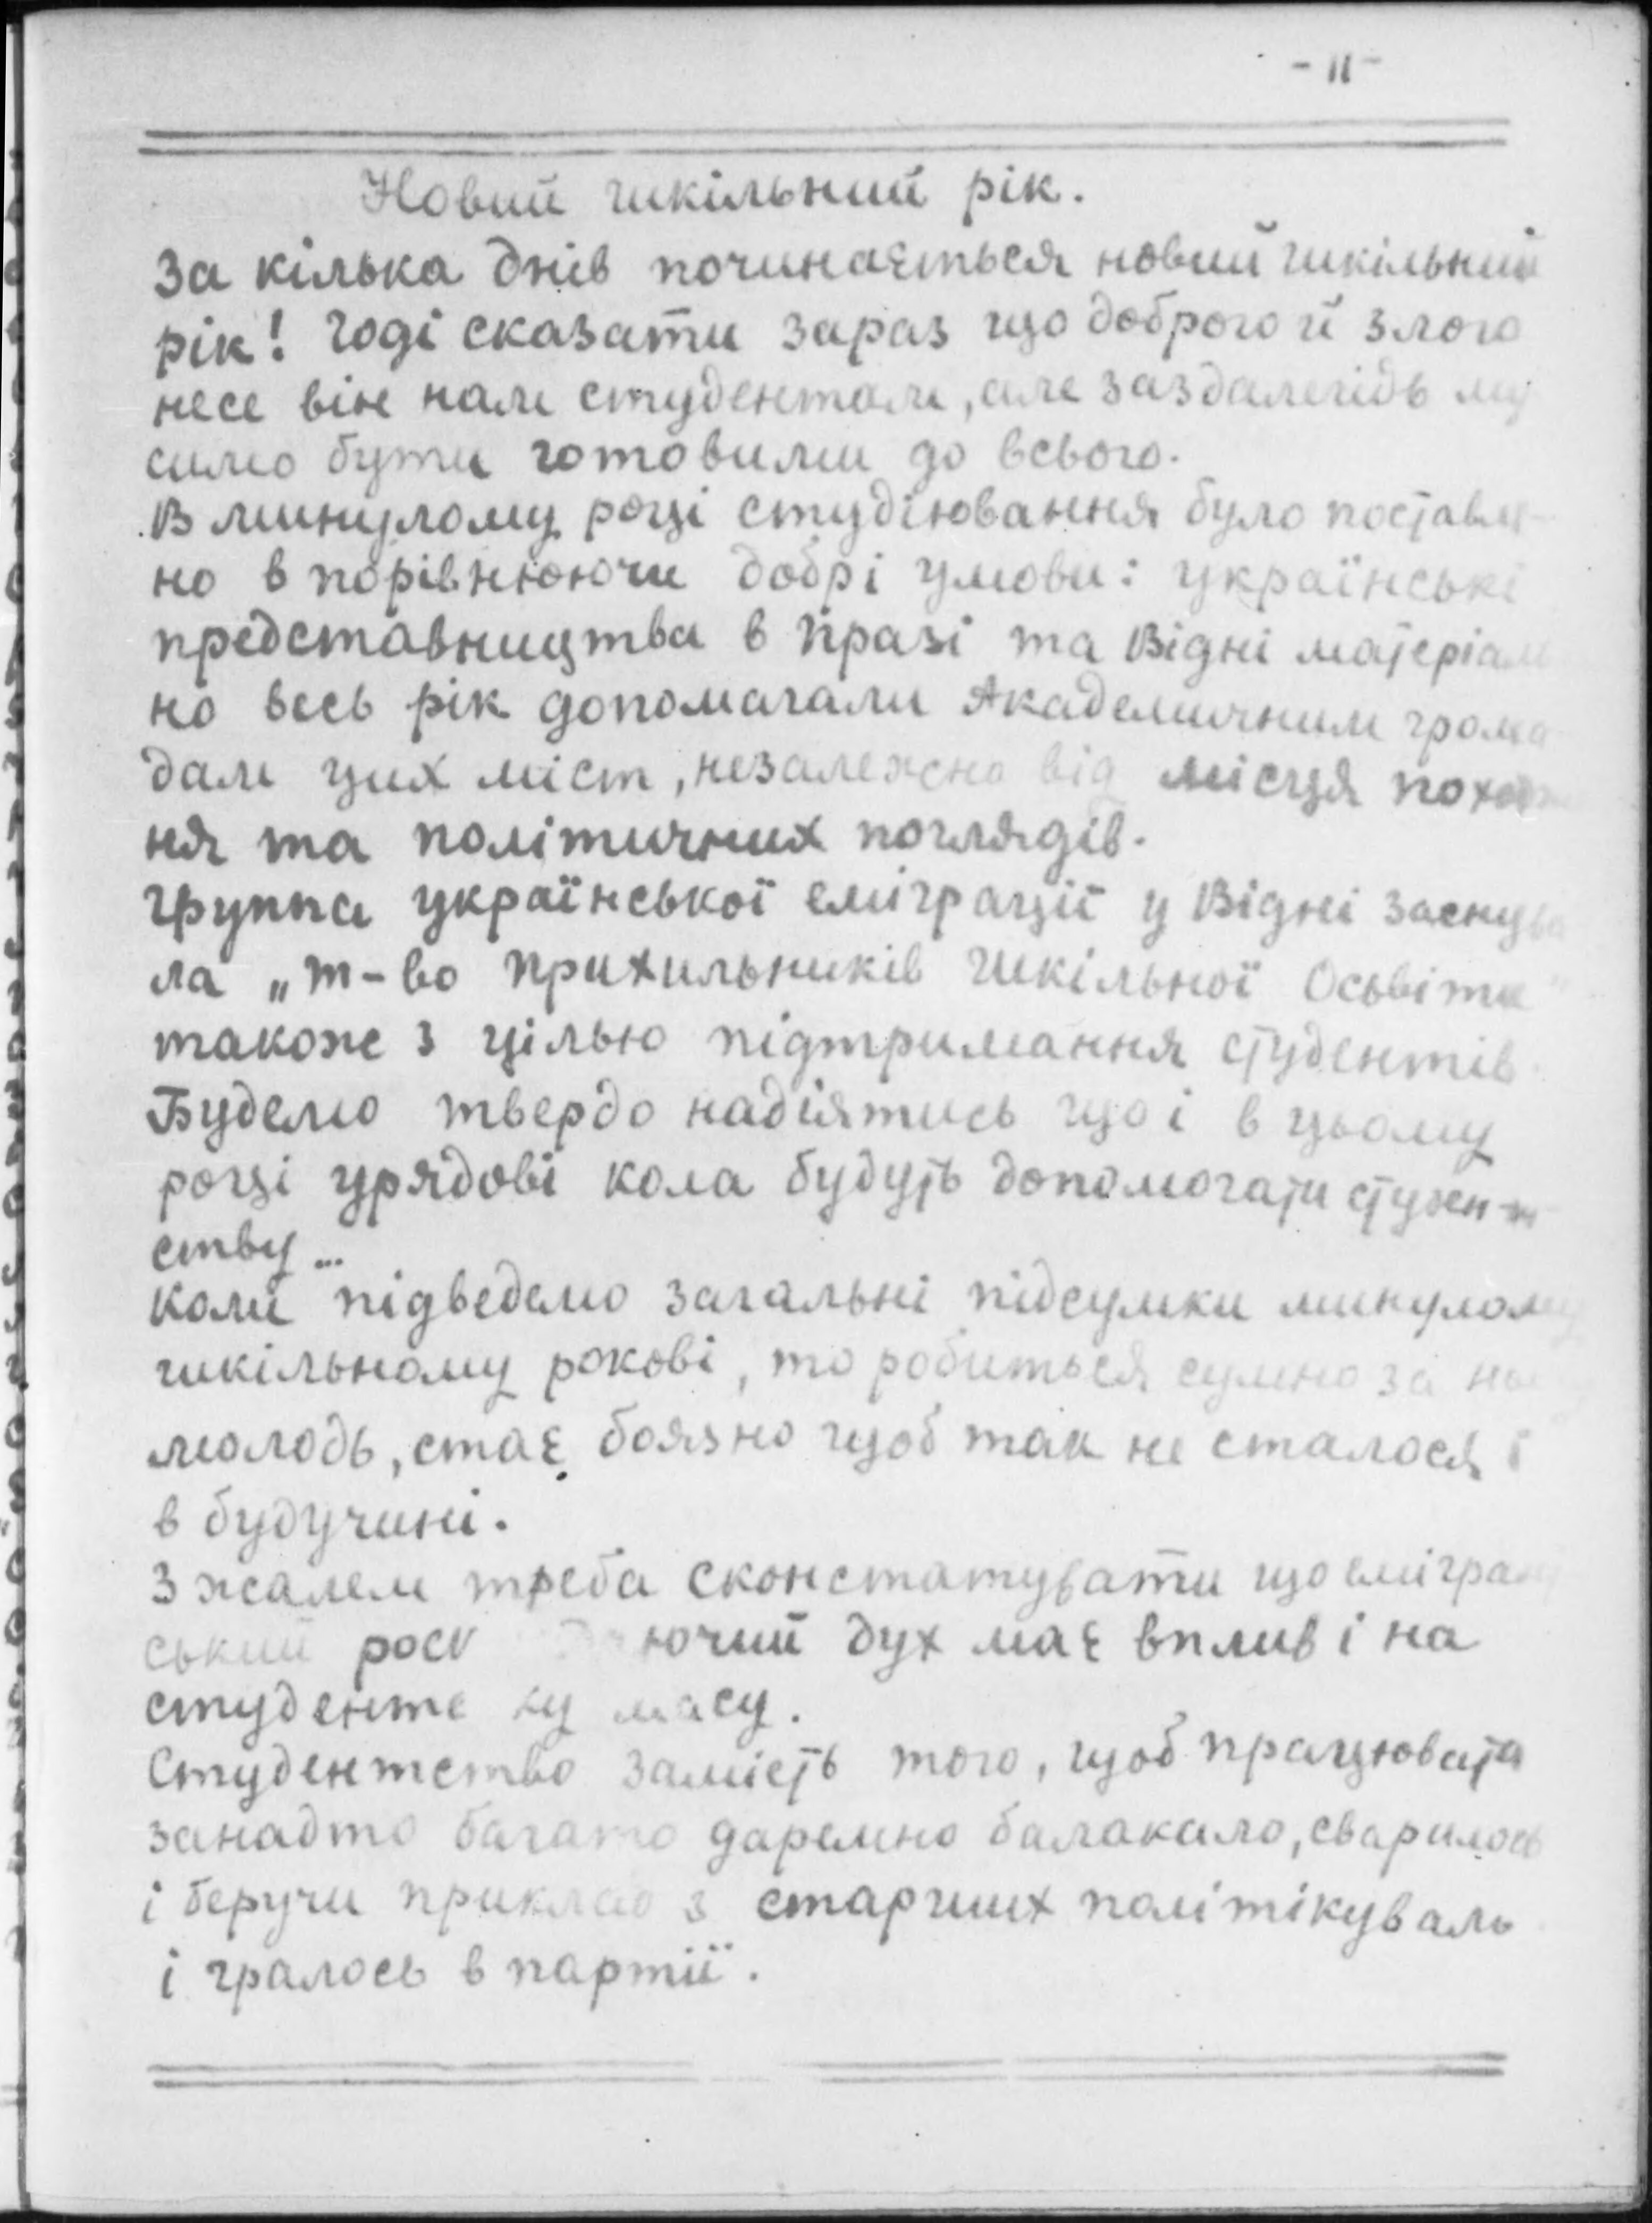 - 11 -
Новий шкільний рік.
За кілька днів починається новий шкільний
рік! Годі сказати зараз що доброго й злого
несе він нам студентам, але заздалегідь му
симо бути готовими до всього.
В минулому році студіювання було поставле-
но в порівнюючи добрі умови: українські
представництва в Празі та Відні матеріаль
но весь рік допомагали Академичним грома
дам цих міст, незалежно від місця походже
ня та політичних поглядів.
Группа української еміграції у Відні заснува
ла „Т-во Прихильників Шкільної Осьвіти"
також з цілью підтримання студентів.
Будемо твердо надіятись що і в цьому
році урядові кола будуть допомогати студент-
ству...
Коли підведемо загальні підсумки минулому
шкільному рокові, то робиться сумно за
молодь, стає боязно щоб так не сталося і
в будучині.
З жалем треба сконстатувати що емігрант
ський ючий дух має вплив і на
масу.
Студентство замість того, щоб працювати
занадто багато даремно балакало, сварилось
і беручи приклад з старших політікуваль
і гралось в партії.